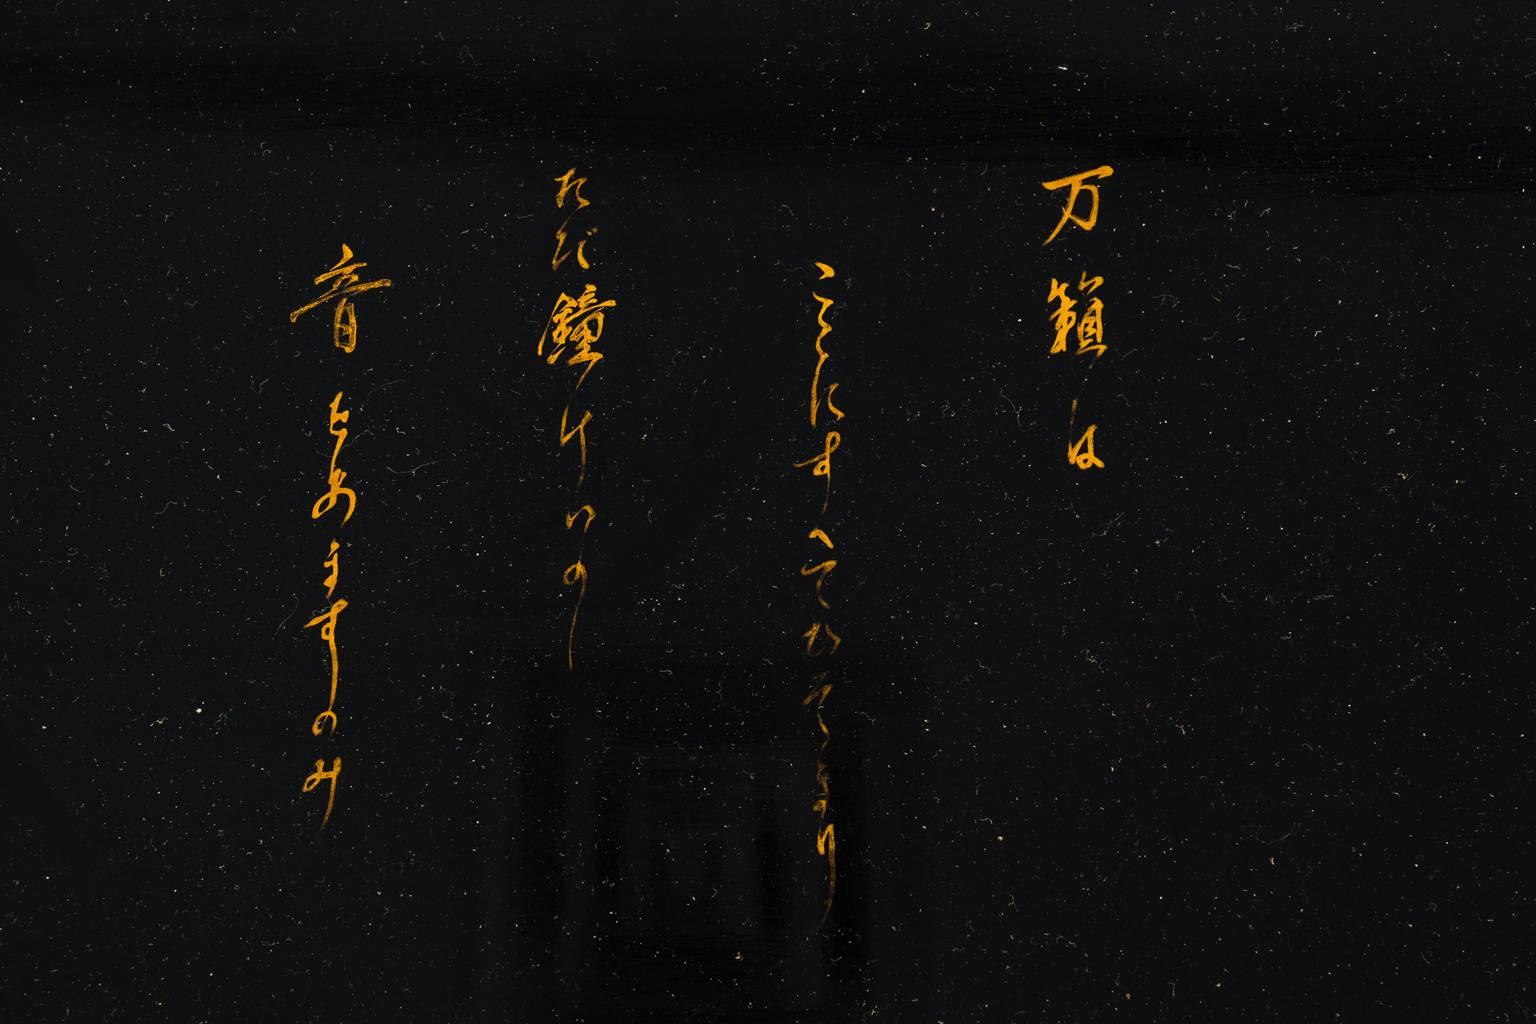 万籟は
ここにすへてひそまり
ただ鐘けいの
音をあますのみ